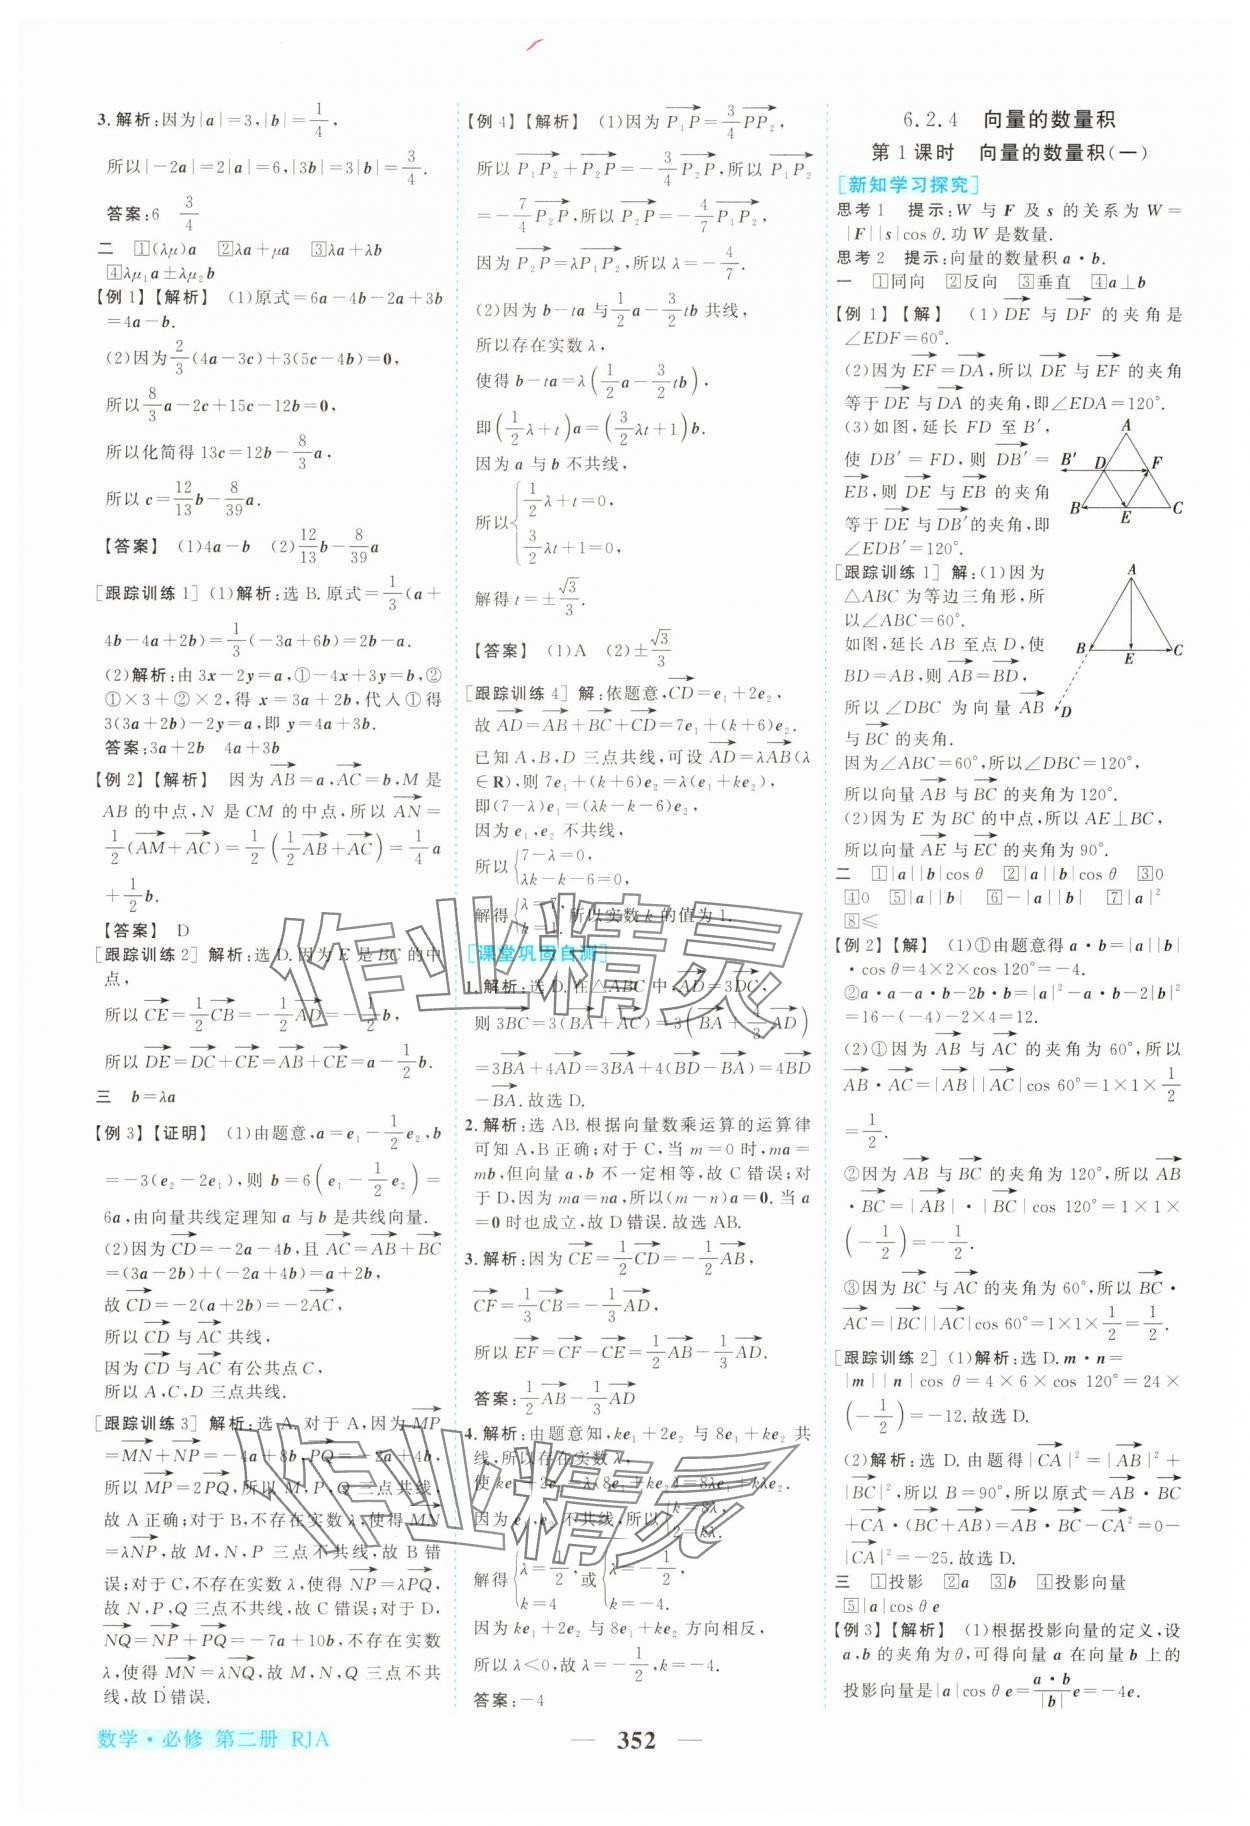 3.解析:因为|a|=3,|b|=1/4,
所以|-2a|=2|a|=6,|3b|=3|b|=3/4.
答案:6 3/4
二 ①(λμ)a ②λa+μa ③λa+λb
④λμ₁a±λμ₂b
【例1】【解析】 (1)原式=6a-4b-2a+3b
=4a-b.
(2)因为2/3(4a-3c)+3(5c-4b)=0,
所以8/3a-2c+15c-12b=0,
所以化简得13c=12b-8/3a,
所以c=12/13b-8/39a.
【答案】 (1)4a-b (2)12/13b-8/39a
[跟踪训练1] (1)解析:选B.原式=1/3(a+
4b-4a+2b)=1/3(-3a+6b)=2b-a.
(2)解析:由3x-2y=a,①-4x+3y=b,②
①×3+②×2,得x=3a+2b,代入①得
3(3a+2b)-2y=a,即y=4a+3b.
答案:3a+2b 4a+3b
【例2】【解析】 因为→AB=a,→AC=b,M是
AB的中点,N是CM的中点,所以→AN=
1/2(→AM+→AC)=1/2(1/2→AB+→AC)=1/4a
+1/2b.
【答案】 D
[跟踪训练2] 解析:选D.因为E是BC的中
点,
所以→CE=1/2→CB=-1/2→AD=-1/2b,
所以→DE=→DC+→CE=→AB+→CE=a-1/2b.
三 b=λa
【例3】【证明】 (1)由题意,a=e₁-1/2e₂,b
=-3(e₂-2e₁),则b=6(e₁-1/2e₂)=
6a,由向量共线定理知a与b是共线向量.
(2)因为→CD=-2a-4b,且→AC=→AB+→BC
=(3a-2b)+(-2a+4b)=a+2b,
故→CD=-2(a+2b)=-2→AC,
所以→CD与→AC共线,
因为→CD与→AC有公共点C,
所以A,C,D三点共线.
[跟踪训练3] 解析:选A.对于A,因为→MP
=→MN+→NP=-4a+8b,→PQ=-2a+4b,
所以→MP=2→PQ,所以M,P,Q三点共线,
故A正确;对于B,不存在实数λ,使得→MN
=λ→NP,故M,N,P三点不共线,故B错
误;对于C,不存在实数λ,使得→NP=λ→PQ,
故N,P,Q三点不共线,故C错误;对于D,
→NQ=→NP+→PQ=-7a+10b,不存在实数
λ,使得→MN=λ→NQ,故M,N,Q三点不共
线,故D错误.
【例4】【解析】 (1)因为→P₁P=3/4→PP₂,
所以→P₁P₂+→P₂P=-3/4→P₂P,所以→P₁P₂
=-7/4→P₂P,所以→P₂P=-4/7→P₁P₂,
因为→P₂P=λ→P₁P₂,所以λ=-4/7.
(2)因为b-ta与1/2a-3/2tb共线,
所以存在实数λ,
使得b-ta=λ(1/2a-3/2tb),
即(1/2λ+t)a=(3/2λt+1)b.
因为a与b不共线,
所以{1/2λ+t=0,
3/2λt+1=0,
解得t=±√3/3.
【答案】 (1)A (2)±√3/3
[跟踪训练4] 解:依题意,→CD=e₁+2e₂,
故→AD=→AB+→BC+→CD=7e₁+(k+6)e₂.
已知A,B,D三点共线,可设→AD=λ→AB(λ
∈R),则7e₁+(k+6)e₂=λ(e₁+ke₂),
即(7-λ)e₁=(λk-k-6)e₂,
因为e₁,e₂不共线,
所以{7-λ=0,
λk-k-6=0,
解得{λ=7,
k=1, 所以实数k的值为1.
[课堂巩固自测]
1.解析:选D.在△ABC中,→AD=3→DC,
则3→BC=3(→BA+→AC)=3(→BA+4/3→AD)
=3→BA+4→AD=3→BA+4(→BD-→BA)=4→BD
-→BA.故选D.
2.解析:选AB.根据向量数乘运算的运算律
可知A,B正确;对于C,当m=0时,ma=
mb,但向量a,b不一定相等,故C错误;对
于D,因为ma=na,所以(m-n)a=0.当a
=0时也成立,故D错误.故选AB.
3.解析:因为→CE=1/2→CD=-1/2→AB,
→CF=1/3→CB=-1/3→AD,
所以→EF=→CF-→CE=1/2→AB-1/3→AD.
答案:1/2→AB-1/3→AD
4.解析:由题意知,ke₁+2e₂与8e₁+ke₂共
线,所以存在实数λ,
使ke₁+2e₂=λ(8e₁+ke₂)=8λe₁+kλe₂.
因为e₁,e₂不共线,所以{k=8λ,
2=kλ.
解得{λ=1/2,
k=4 或{λ=-1/2,
k=-4.
因为ke₁+2e₂与8e₁+ke₂方向相反,
所以λ<0,故λ=-1/2,k=-4.
答案:-4
6.2.4 向量的数量积
第1课时 向量的数量积(一)
[新知学习探究]
思考1 提示:W与F及s的关系为W=
|F||s|cos θ.功W是数量.
思考2 提示:向量的数量积a·b.
一 ①同向 ②反向 ③垂直 ④a⊥b
【例1】【解】 (1)→DE与→DF的夹角是
∠EDF=60°.
(2)因为→EF=→DA,所以→DE与→EF的夹角
等于→DE与→DA的夹角,即∠EDA=120°.
(3)如图,延长FD至B′,
使DB′=FD,则→DB′=
→EB,则→DE与→EB的夹角
等于→DE与→DB′的夹角,即
∠EDB′=120°.
A
B′ D F
B E C
[跟踪训练1] 解:(1)因为
△ABC为等边三角形,所
以∠ABC=60°.
如图,延长AB至点D,使
BD=AB,则→AB=→BD,
所以∠DBC为向量→AB
与→BC的夹角.
A
B E C
D
因为∠ABC=60°,所以∠DBC=120°,
所以向量→AB与→BC的夹角为120°.
(2)因为E为BC的中点,所以AE⊥BC,
所以向量→AE与→EC的夹角为90°.
二 ①|a||b|cos θ ②|a||b|cos θ ③0
④0 ⑤|a||b| ⑥-|a||b| ⑦|a|²
⑧≤
【例2】【解】 (1)①由题意得a·b=|a||b|
·cos θ=4×2×cos 120°=-4.
②a·a-a·b-2b·b=|a|²-a·b-2|b|²
=16-(-4)-2×4=12.
(2)①因为→AB与→AC的夹角为60°,所以
→AB·→AC=|→AB||→AC|cos 60°=1×1×1/2
=1/2.
②因为→AB与→BC的夹角为120°,所以→AB
·→BC=|→AB|·|→BC|cos 120°=1×1×
(-1/2)=-1/2.
③因为→BC与→AC的夹角为60°,所以→BC·
→AC=|→BC||→AC|cos 60°=1×1×1/2=1/2.
[跟踪训练2] (1)解析:选D.m·n=
|m||n|cos θ=4×6×cos 120°=24×
(-1/2)=-12.故选D.
(2)解析:选D.由题得|→CA|²=|→AB|²+
|→BC|²,所以B=90°,所以原式=→AB·→BC
+→CA·(→BC+→AB)=→AB·→BC-→CA²=0-
|→CA|²=-25.故选D.
三 ①投影 ②a ③b ④投影向量
⑤|a|cos θ e
【例3】【解析】 (1)根据投影向量的定义,设
a,b的夹角为θ,可得向量a在向量b上的
投影向量是|a|cos θ e=a·b/|b|e=-4e.
数学·必修 第二册 RJA
352
作业精灵
作业精灵